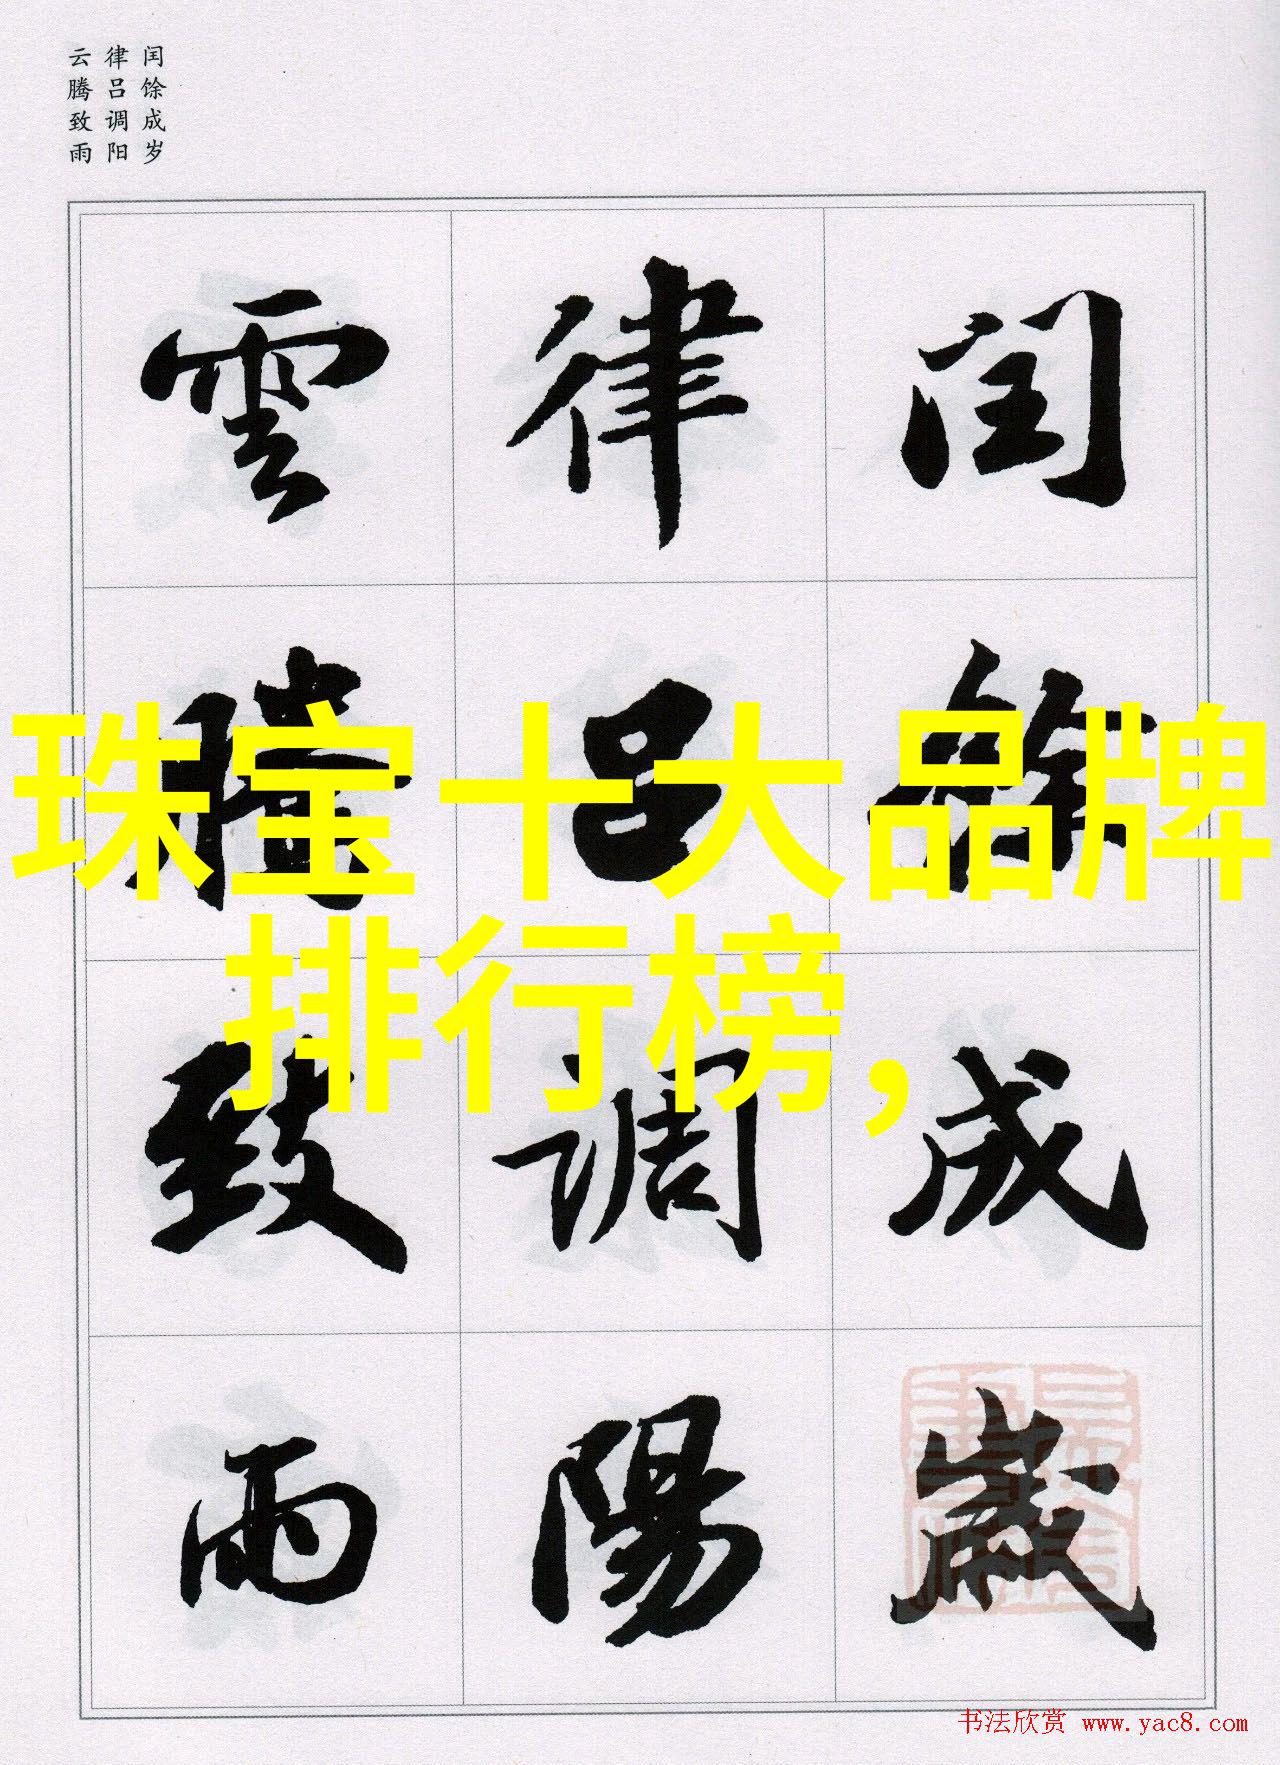 闰馀成岁
律吕调阳
云腾致雨
閏餘成歲
律呂調陽
雲騰致雨
珠宝十大品牌
排行榜,
书法欣赏 www.yac8.com